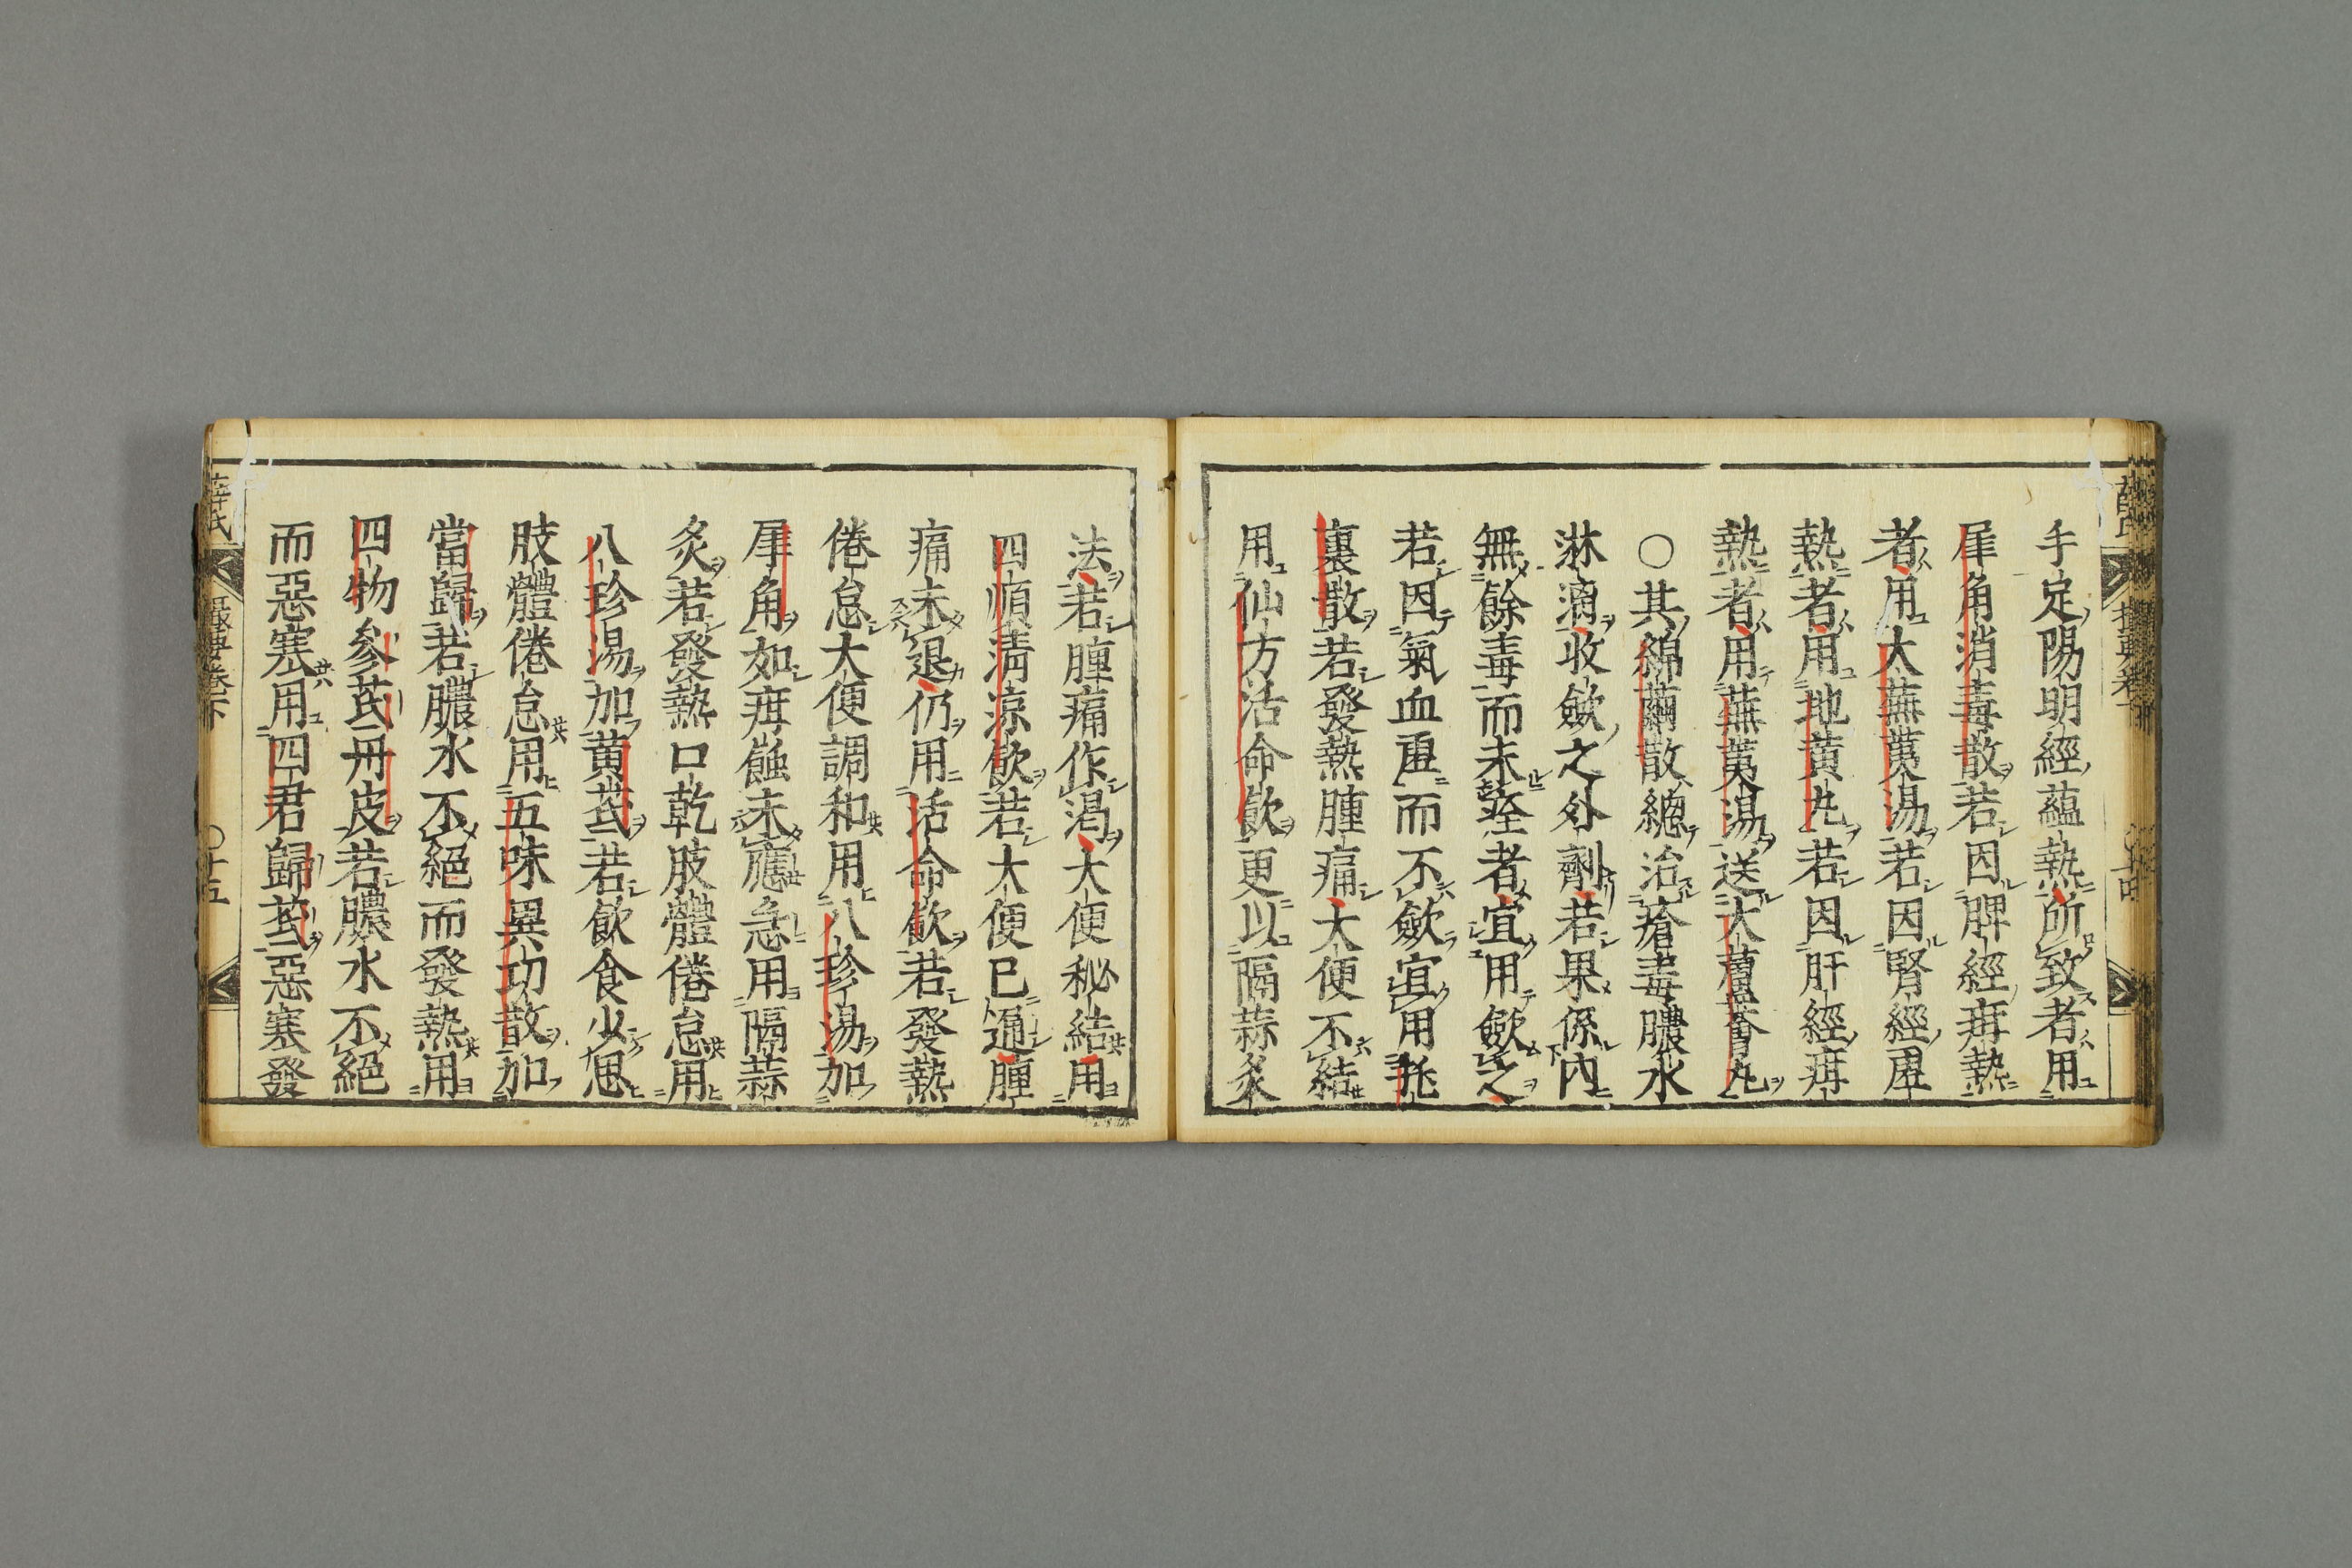 手足陽明經蘊熱所致者用
犀角消毒散若因脾經疳熱
者用大蕪荑湯若因腎經虛
熱者用地黃丸若因肝經疳
熱者用蕪荑湯送大蘆薈丸
〇其綿繭散總治瘡毒膿水
淋漓收歛之外劑若果係内
無餘毒而未痊者宜用歛之
若因氣血虛而不歛宜用托
裏散若發熱腫痛大便不結
用仙方活命飲更以隔蒜灸
法若腫痛作渴大便秘結用
四順清涼飲若大便已通腫
痛未退仍用活命飲若發熱
倦怠大便調和用八珍湯加
犀角如疳蝕未應急用隔蒜
灸若發熱口乾肢體倦怠用
八珍湯加黃茋若飲食少思
肢體倦怠用五味異功散加
當歸若膿水不絕而發熱用
四物參茋丹皮若膿水不絕
而惡寒用四君歸茋惡寒發
薛氏
卷下
〇十五